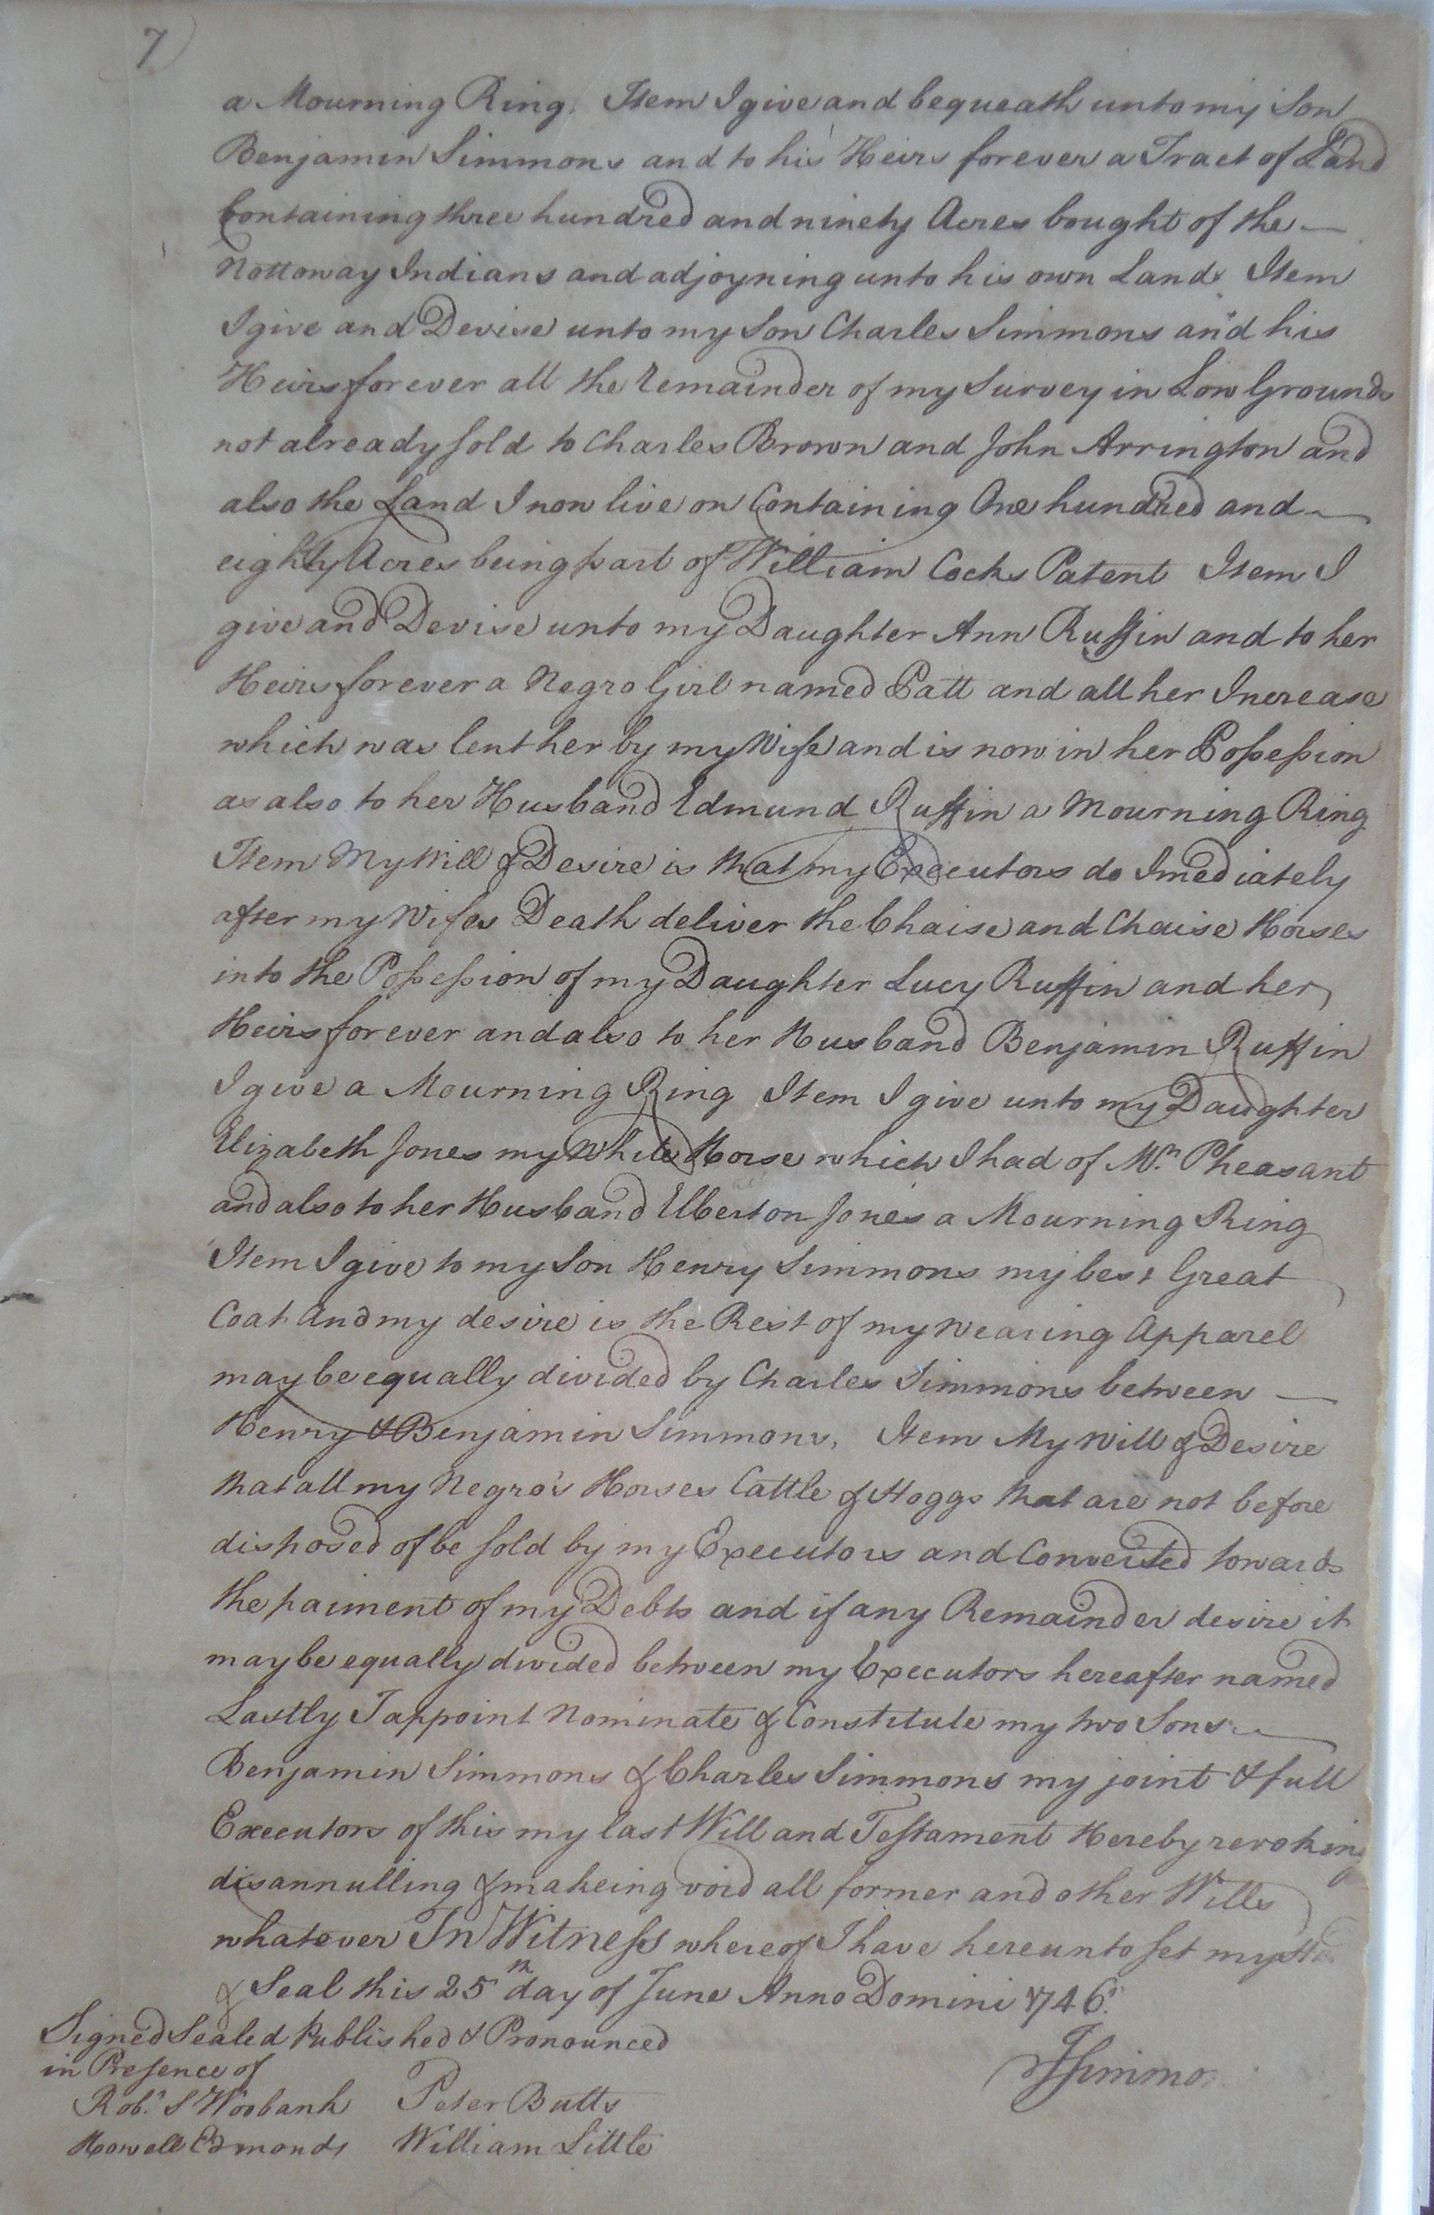 7
a Mourning Ring. Item I give and bequeath unto my Son
Benjamin Simmons and to his Heirs forever a Tract of Land
Containing three hundred and ninety Acres bought of the
Nottoway Indians and adjoyning unto his own Land. Item
I give and Devise unto my Son Charles Simmons and his
Heirs forever all the Remainder of my Survey in Low Grounds
not already sold to Charles Brown and John Arrington and
also the Land I now live on Containing One hundred and
eighty Acres being part of William Cocks Patent Item I
give and Devise unto my Daughter Ann Ruffin and to her
Heirs forever a Negro Girl named Patt and all her Increase
which was lent her by my Wife and is now in her Possession
as also to her Husband Edmund Ruffin a Mourning Ring
Item My Will & Desire is that my Executors do Imediately
after my Wifes Death deliver the Chaise and Chaise Horses
into the Possession of my Daughter Lucy Ruffin and her
Heirs forever and also to her Husband Benjamin Ruffin
I give a Mourning Ring Item I give unto my Daughter
Elizabeth Jones my White Horse which I had of Mr. Pheasant
and also to her Husband Elberton Jones a Mourning Ring
Item I give to my Son Henry Simmons my best Great
Coat And my desire is the Rest of my Wearing Apparel
may be equally divided by Charles Simmons between
Henry & Benjamin Simmons, Item My Will & Desire
that all my Negro's Horses Cattle & Hoggs that are not before
disposed of be sold by my Executors and Converted towards
the paiment of my Debts and if any Remainder desire it
may be equally divided between my Executors hereafter named
Lastly I appoint Nominate & Constitute my two Sons
Benjamin Simmons & Charles Simmons my joint & full
Executors of this my last Will and Testament Hereby revoking
disannulling & makeing void all former and other Wills
whatever In Witness whereof I have hereunto set my
& Seal this 25th day of June Anno Domini 1746.
Signed Sealed Published & Pronounced
in Presence of
Robt. S Woobank Peter Butts
Howell Edmonds William Little